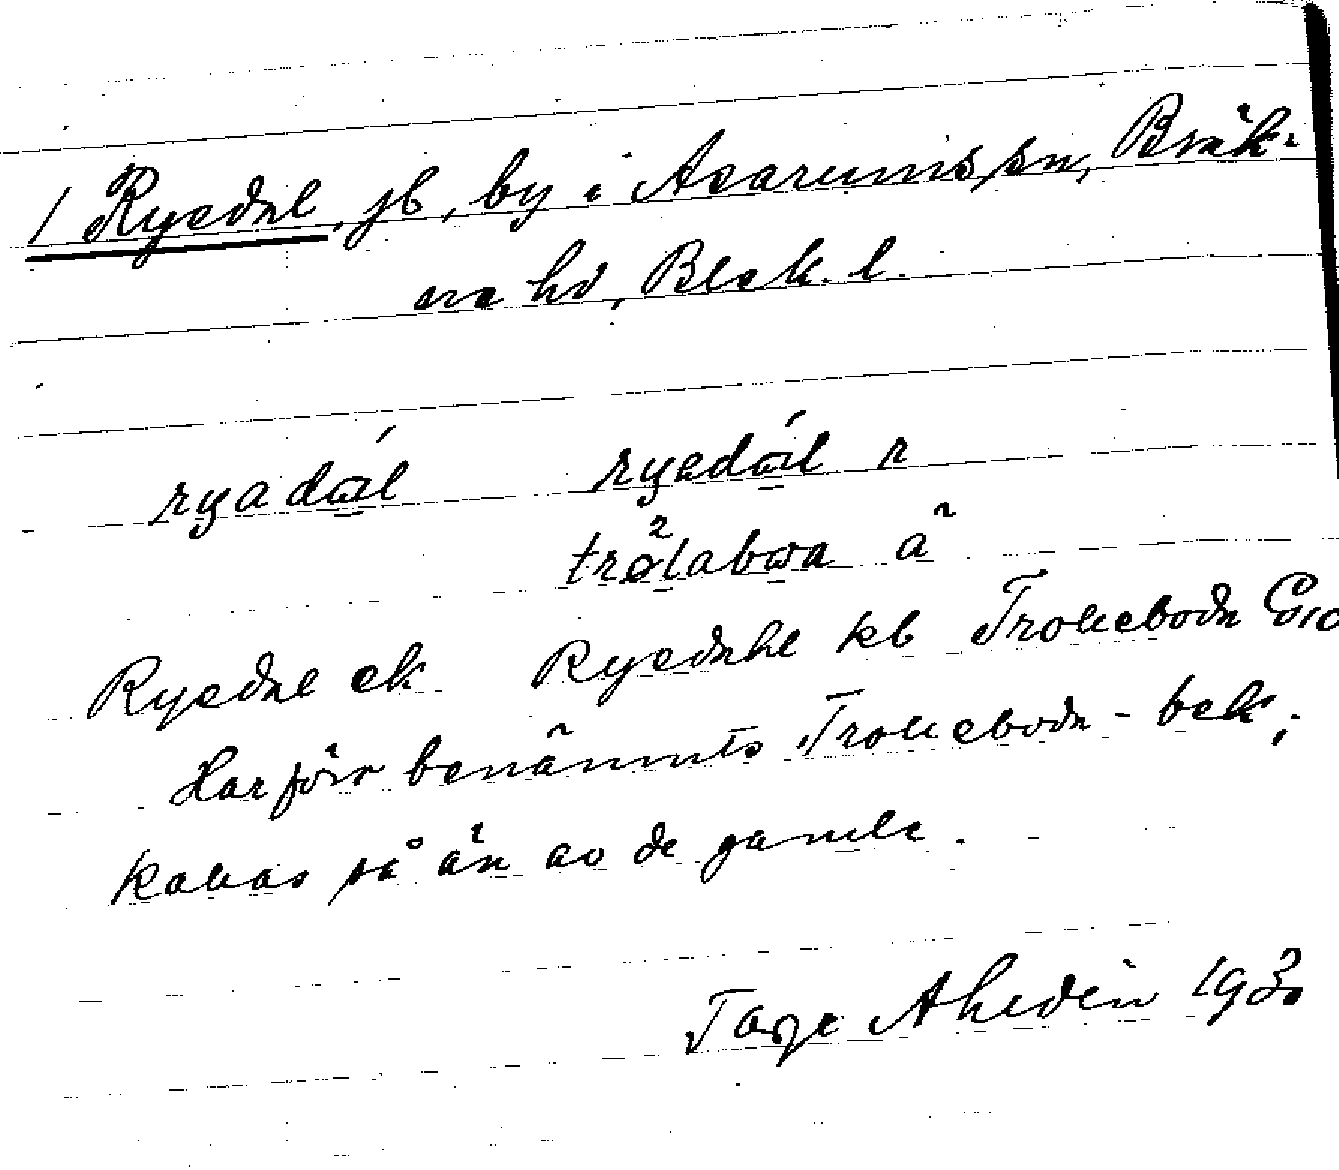 1 Ryedal, jb, by i Asarums sn, Bräk-
ne hd, Blek. l.
ryadal ryedal r
trölaboa å
Ryedal ek Ryedahl kb Trolleboda
Har förr benämnts Trolleboda - bek;
kallas så än av de gamle.
Tage Ahldén 1930